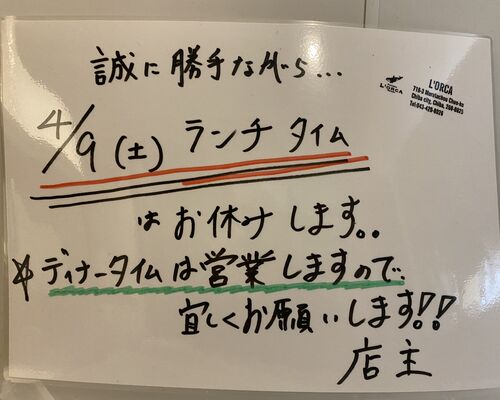 誠に勝手ながら...
L'ORCA
L'ORCA
Chiba city, Chiba, 260-0823
4/9(土) ランチ タイム
はお休みします。
☆ディナータイムは営業しますので、
宜しくお願いします!!
店主